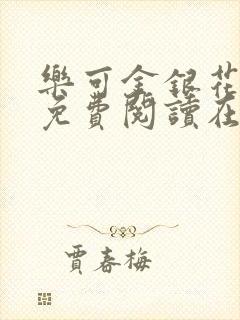 樂可金銀花
免費閱讀在
賈春梅